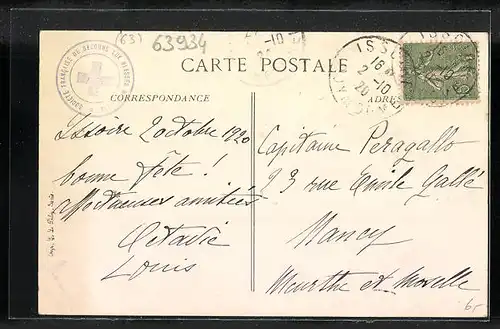 (63) 63934
SOCIÉTÉ FRANÇAISE DE SECOURS AUX BLESSÉS
CARTE POSTALE
CORRESPONDANCE
ADRE
ISSOIRE
16
2-10
20
Issoire 2 octobre 1920
bonne fête !
affectueuses amitiés
Octavie
Louis
Capitaine Peragallo
23 rue Emile Gallé
Nancy
Meurthe et Moselle
6-